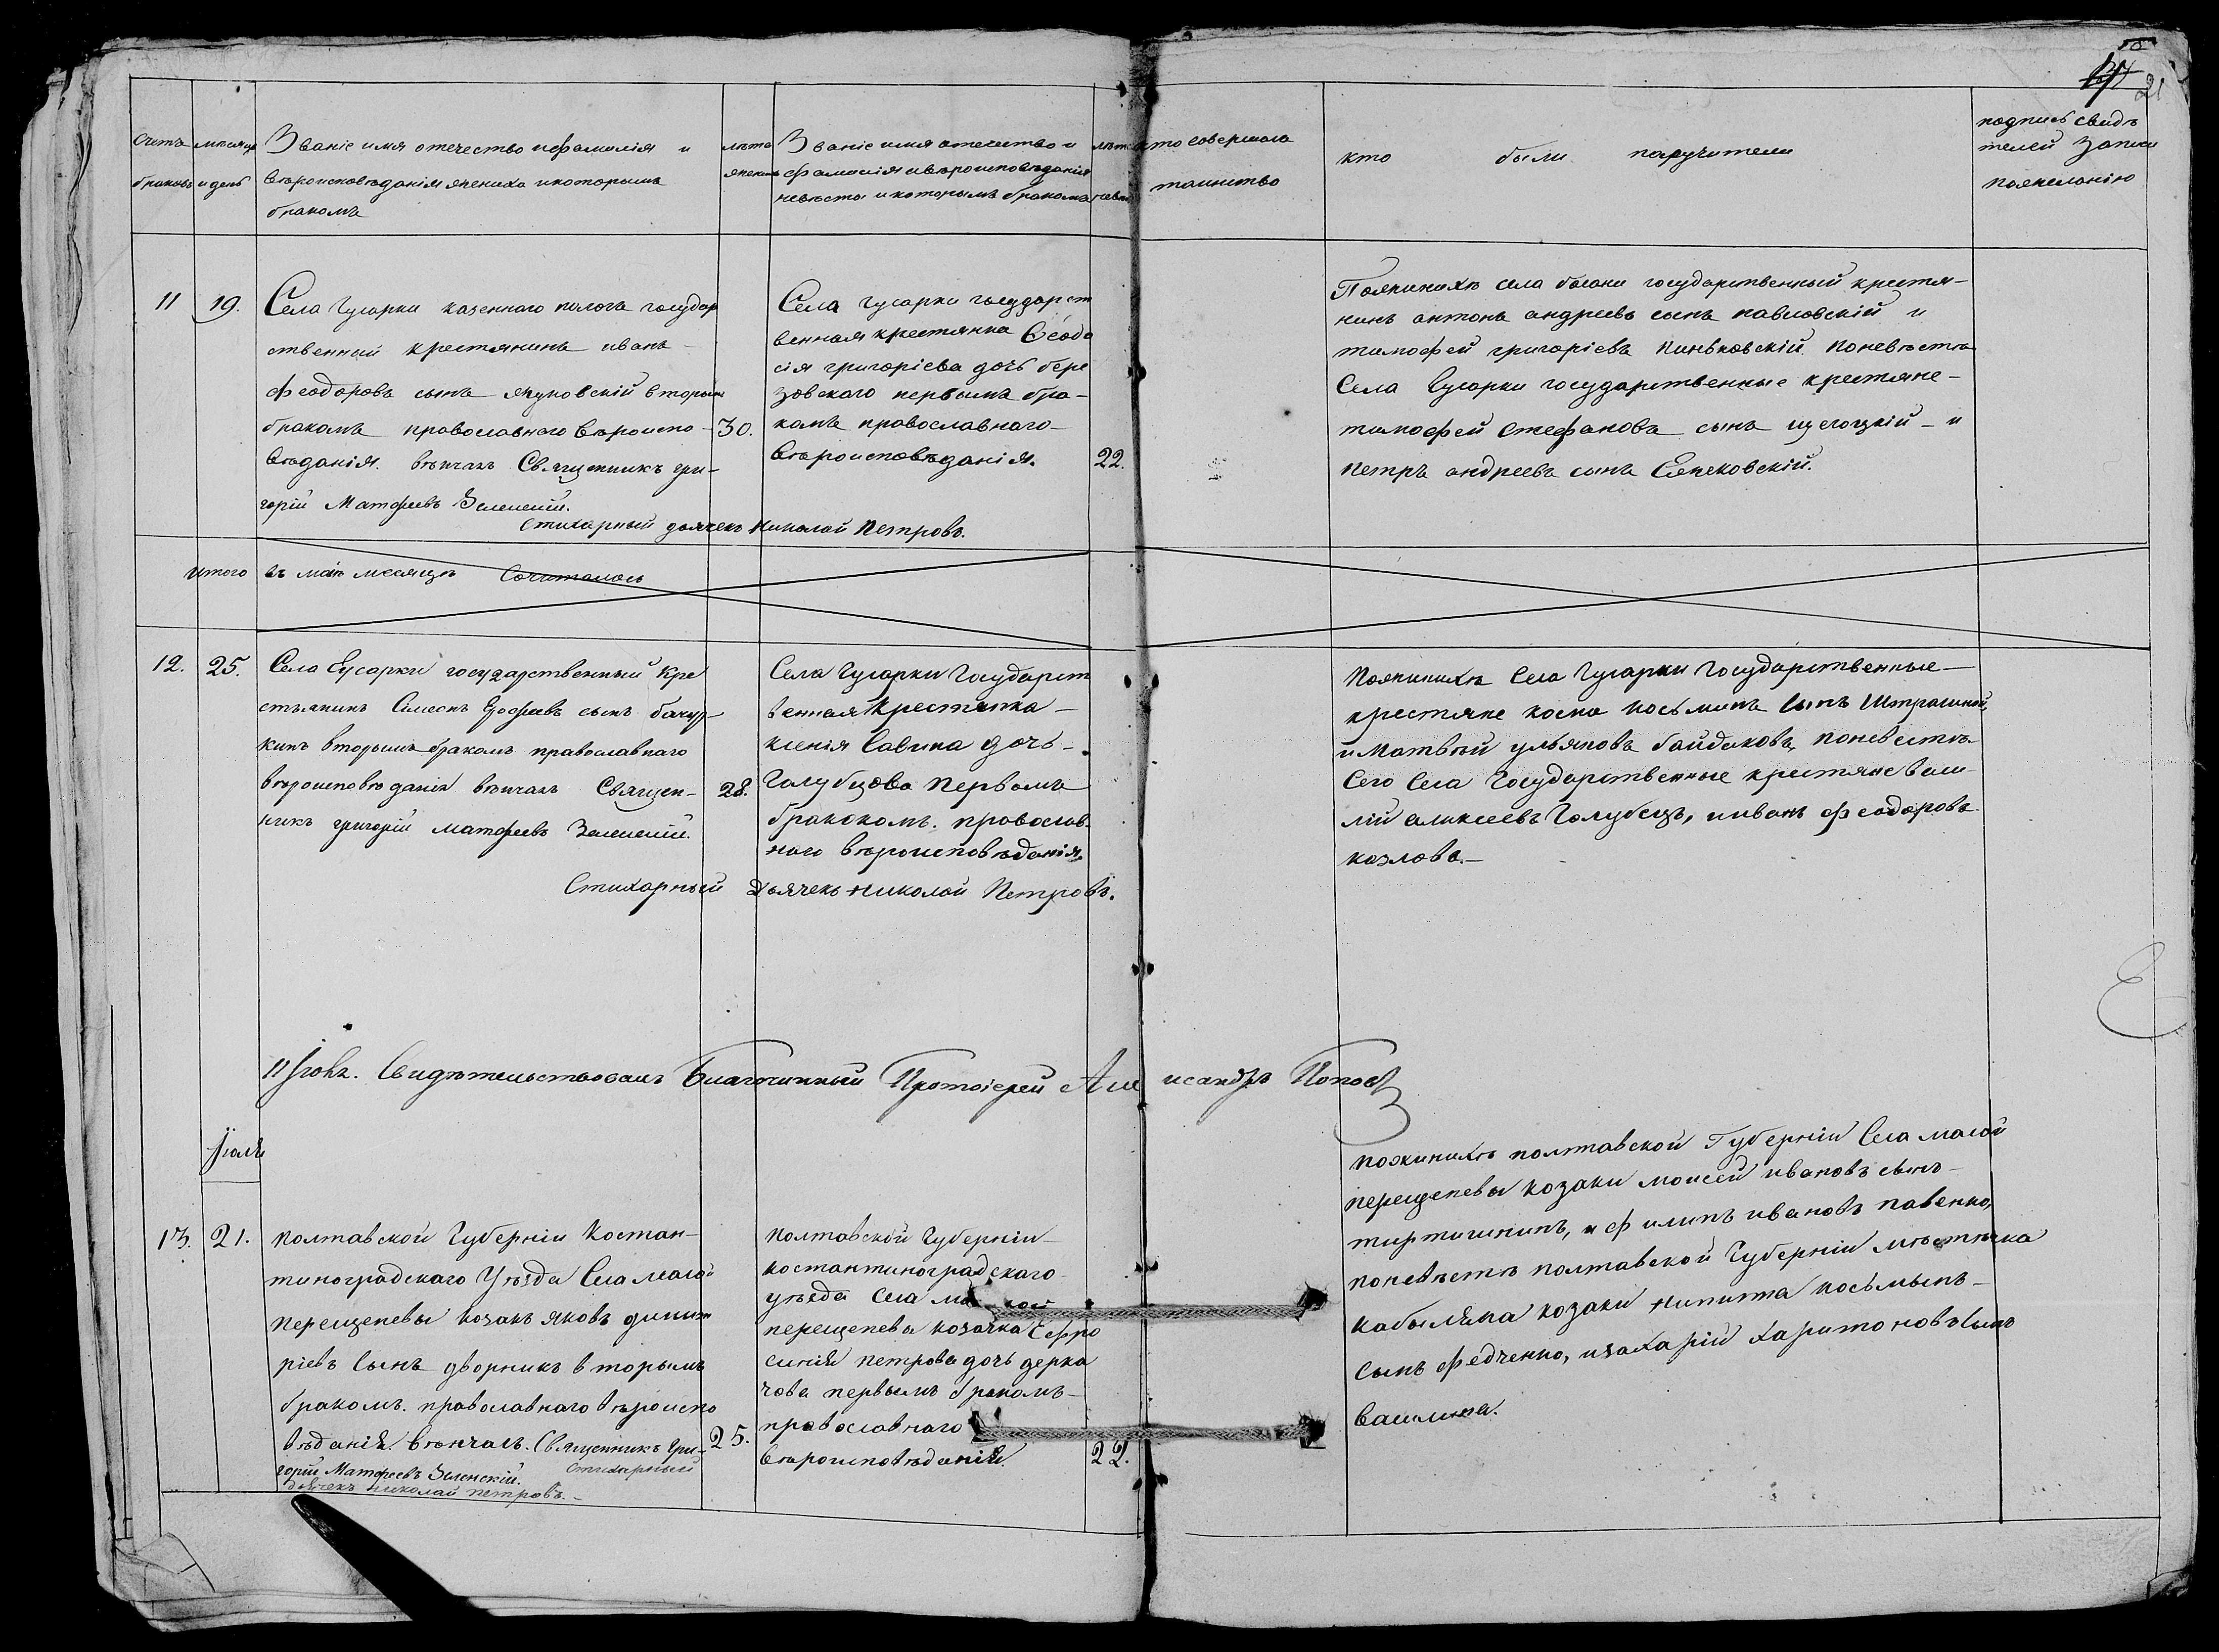 21
Счетъ браковъ
месяцъ и день
Званіе имя отечество и фамилія и
вѣроисповѣданія жениха и которымъ
бракомъ
лѣта жениха
Званіе имя отечество и
фамилія и вѣроисповѣданія
невѣсты и которымъ бракомъ
кто совершалъ
таинство
кто были паручители
подпись свидѣ
телей записи
пожеланію
11
19.
Села Гусарки казеннаго государ
ственный крестянинъ иванъ
феодоровъ сынъ вторымъ
бракомъ православнаго вѣроиспо-
вѣданія. вѣнчалъ Священникъ гри-
горій Матфеевъ Зеленскій.
Стихарный дьячекъ Николай Петровъ.
30.
Села гусарки государст
венная крестянка Феодо
сія григоріева дочь бере
зовскаго первымъ бра-
комъ православнаго
вѣроисповѣданія.
22.
Пожинихѣ села государственный крестя-
нинъ антонъ андреевъ сынъ павловскій и
тимофей григоріевъ поневѣстѣ
Села Гусарки государственные крестяне-
тимофей Стефановъ сынъ и
петръ андреевъ сынъ
итого въ маѣ месяцѣ Сочиталось
12.
25.
Села Гусарки государственный Кре
стьянинъ Симеонъ сынъ
вторымъ бракомъ православнаго
вѣроисповѣданія вѣнчалъ Священ-
никъ григорій матфеевъ Зеленскій.
Стихарный Дьячекъ николай Петровъ.
28.
Села Гусарки Государст
венная Крестянка
ксенія Савина дочь
Голубцова Первомъ
бракокомъ. провослав
наго вѣроисповѣданія.
Пожинихѣ Села Гусарки Государственные
крестяне косма косьминъ сынъ
и Матвѣй ульяновъ байдаковъ, поневестѣ
Сего Села Государственные крестяне васи-
лій алексеевъ Голубецъ, и иванъ феодоровъ
козловъ.
Свидѣтельствовалъ Благочинный Протоіерей Александръ Поповъ
Іюля
13.
21.
полтавской Губерніи Костан-
тиноградскаго Уѣзда Села малой
перещепены козакъ яковъ димит
ріевъ сынъ дворникъ вторымъ
бракомъ. православнаго вѣроиспо
вѣданія. вѣнчалъ. Священникъ Гри-
горій Матфеевъ Зеленскій. Стихарный
дьячекъ николай петровъ.
25.
полтавской Губерніи
костантиноградскаго
уѣзда села
перещепены козачка Ефро
синія петрова дочь дерка
чова первымъ бракомъ
православнаго
вѣроисповѣданія.
22.
пожинихѣ полтавской Губерніи Села малой
перещепены козаки моисей ивановъ сынъ
и филипъ ивановъ павенко,
поневѣстѣ полтавской Губерніи мѣстечка
кабыляка козаки никита косьминъ
сынъ федченко, и захарій харитоновъ сынъ